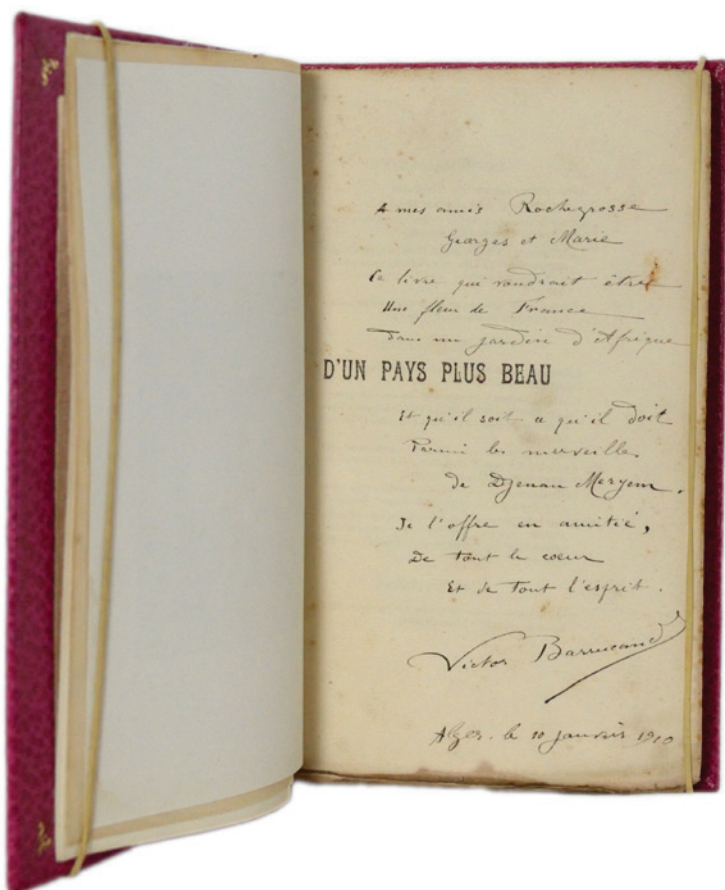 A mes amis Rochegrosse
Georges et Marie
Ce livre qui voudrait être
Une fleur de France
Dans un jardin d'Afrique
D'UN PAYS PLUS BEAU
Et qu'il soit ce qu'il doit
Parmi les merveilles
de Djenan Meryem.
Je l'offre en amitié,
De tout le cœur
Et de tout l'esprit.
Victor Barrucand
Alger. le 10 janvier 1910